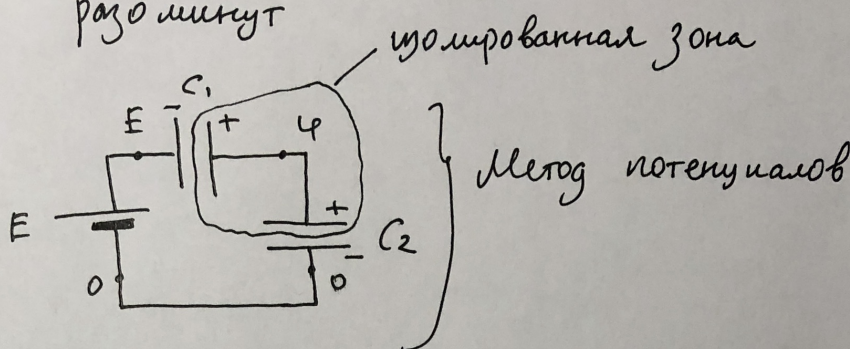 разомкнут
изолированная зона
C₁
E - + φ
Метод потенциалов
E + C₂
-
0 0